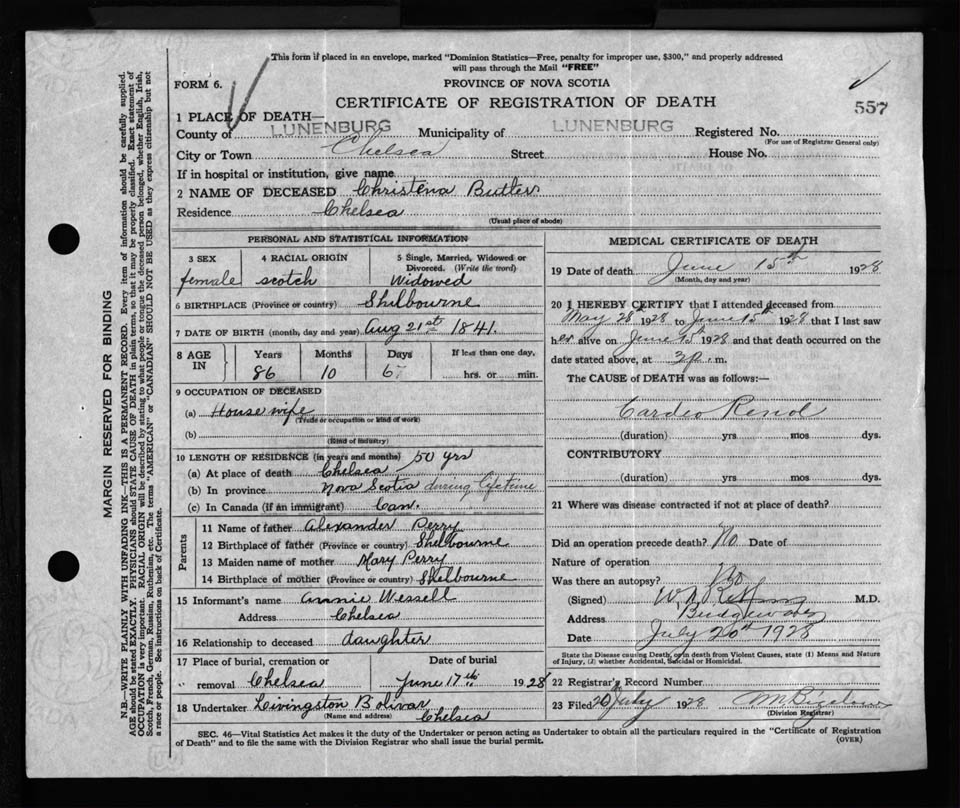 This form if placed in an envelope, marked "Dominion Statistics—Free, penalty for improper use, $300," and properly addressed
will pass through the Mail "FREE"
FORM 6.
PROVINCE OF NOVA SCOTIA
CERTIFICATE OF REGISTRATION OF DEATH
557
1 PLACE OF DEATH—
County of LUNENBURG Municipality of LUNENBURG Registered No.
(For use of Registrar General only)
City or Town Chelsea Street House No.
If in hospital or institution, give name
2 NAME OF DECEASED Christena Butler
Residence Chelsea
(Usual place of abode)
PERSONAL AND STATISTICAL INFORMATION
3 SEX 4 RACIAL ORIGIN 5 Single, Married, Widowed or
Divorced. (Write the word)
female scotch Widowed
6 BIRTHPLACE (Province or country) Shilbourne
7 DATE OF BIRTH (month, day and year) Aug 21st 1841.
8 AGE IN Years Months Days If less than one day,
86 10 hrs. or min.
9 OCCUPATION OF DECEASED
(a) House wife
(Trade or occupation or kind of work)
(b)
(Kind of industry)
10 LENGTH OF RESIDENCE (in years and months) 50 yrs
(a) At place of death Chelsea
(b) In province Nova Scotia during lifetime
(c) In Canada (if an immigrant) Can.
Parents
11 Name of father Alexander Perry
12 Birthplace of father (Province or country) Shelbourne
13 Maiden name of mother Mary Perry
14 Birthplace of mother (Province or country) Shelbourne
15 Informant's name Annie Wessell
Address Chelsea
16 Relationship to deceased daughter
17 Place of burial, cremation or Date of burial
" removal Chelsea June 17th 1928
18 Undertaker Livingston Bolivar
(Name and address) Chelsea
MEDICAL CERTIFICATE OF DEATH
19 Date of death June 15th 1928
(Month, day and year)
20 I HEREBY CERTIFY that I attended deceased from
May 28th 1928 to June 15th 1928 that I last saw
her alive on June 15th 1928 and that death occurred on the
date stated above, at 3 p. m.
The CAUSE of DEATH was as follows:—
Cardeo Renal
(duration) yrs mos dys.
CONTRIBUTORY
(duration) yrs mos dys.
21 Where was disease contracted if not at place of death?
Did an operation precede death? No Date of
Nature of operation
Was there an autopsy? No
(Signed) M.D.
Address
Date July 20th 1928
State the Disease causing Death, or in death from Violent Causes, state (1) Means and Nature
of Injury, (2) whether Accidental, Suicidal or Homicidal.
22 Registrar's Record Number
23 Filed 20th July 1928
(Division Registrar)
SEC. 46—Vital Statistics Act makes it the duty of the Undertaker or person acting as Undertaker to obtain all the particulars required in the "Certificate of Registration
of Death" and to file the same with the Division Registrar who shall issue the burial permit. (OVER)
MARGIN RESERVED FOR BINDING
N.B.—WRITE PLAINLY WITH UNFADING INK—THIS IS A PERMANENT RECORD. Every item of information should be carefully supplied.
AGE should be stated EXACTLY. PHYSICIANS should STATE CAUSE OF DEATH in plain terms, so that it may be properly classified. Exact statement of
OCCUPATION is very important. RACIAL ORIGIN will be described by stating to what people or tongue the deceased person belonged, whether English, Irish,
Scotch, French, German, Russian, Ruthenian, etc. The terms "AMERICAN" or "CANADIAN" SHOULD NOT BE USED as they express citizenship but not
a race or people. See instructions on back of Certificate.